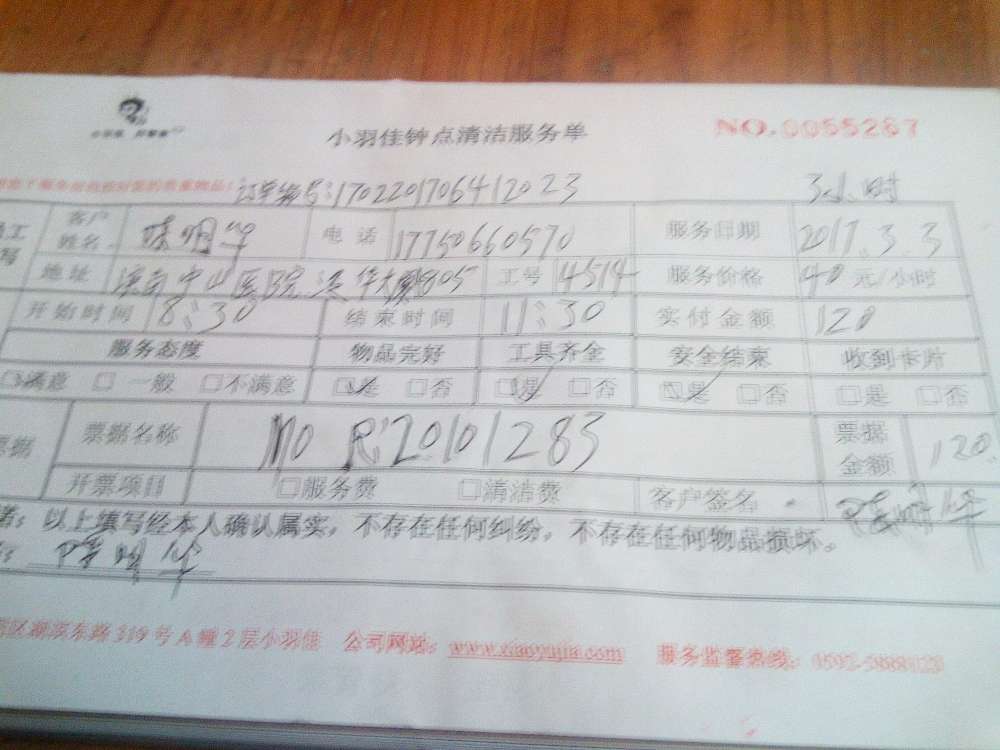 小羽佳钟点清洁服务单 NO.0055287
订单编号:1702201706412023 3小时
客户姓名 陈明华 电话 17750660570 服务日期 2017.3.3
地址 中山医院 805 工号 4514 服务价格 40元/小时
开始时间 8:30 结束时间 11:30 实付金额 120
服务态度 物品完好 工具齐全 安全结束 收到卡片
□满意 □一般 □不满意 □是 □否 □是 □否 □是 □否 □是 □否
票据 票据名称 NO R:20101283 票据金额 120.
开票项目 □服务费 □清洁费 客户签名 陈明华
以上填写经本人确认属实,不存在任何纠纷,不存在任何物品损坏。
陈明华
东路319号A幢2层小羽佳 公司网站:www.xiaoyujia.com 服务监督热线: